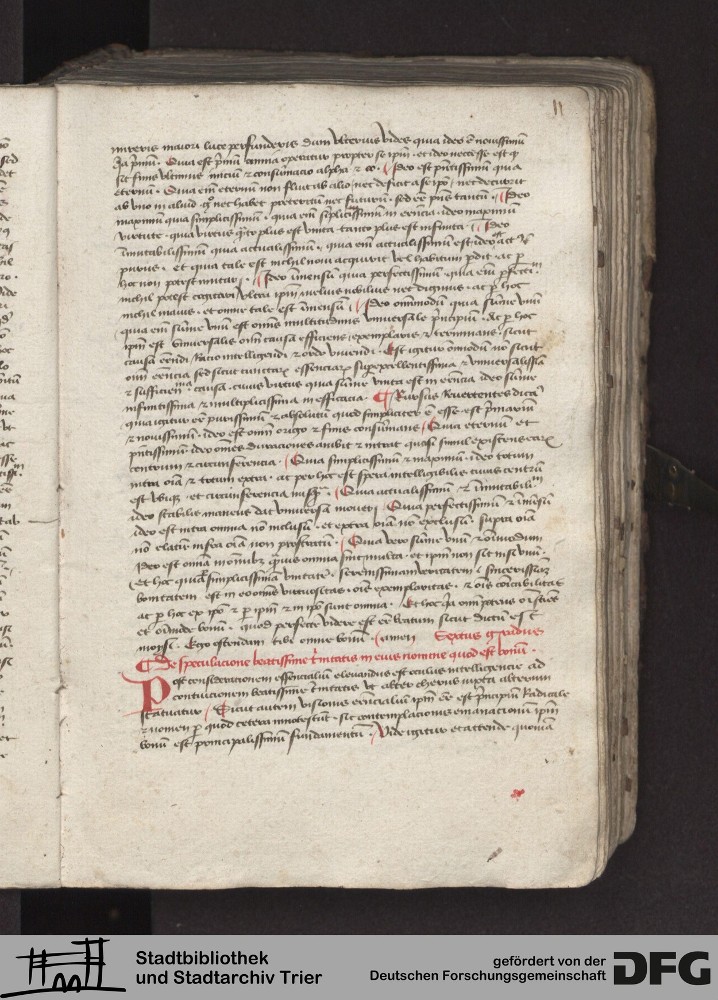 11
mireris maiori luce perfunderis dum ulterius vides quia ideo ē novissimū
qa p̄mū · Quia est p̄mū omnia operatur propter se ipm̄ · et ideo necesse est ꝙ
sit finis ultimus iniciū ⁊ consumacio alpha ⁊ oo · Ideo est pn̄tissimū quia
eternū · Quia em̄ eternū non fluit ab alio nec deficit a se ipo nec decurrit
ab uno in aliud gͦ nec habet preteritū nec futurū · sed eē pn̄s tantū · Ideo
maximum quia simplicissimū · quia em̄ simplicissimū in eencia · ideo maximū
virtute · quia virtus qͣnto plus est unita tanto plus est infinita · Ideo
īmutabilissimū quia actualissimū · quia em̄ actualissimū est · ideo act᷒ ē
purus · et quia tale est nichil novi acquirit vel habitum pdit · ac p̄
hoc non potest mutari · Ideo īmensū quia perfectissimū · quia em̄ pfectissimū
nichil potest cogitari ultra ipm̄ melius nobilius nec dignius · ac p̄ hoc
nichil maius · et omne tale est īmensū · Ideo omnimodū quia sūme unū
quia em̄ sūme unū est omnis multitudinis universale p̄ncipiū · Ac p̄ hoc
ipm̄ est universalis oīm causa efficiens exemplaris ⁊ terminans · sicut
causa eēndi racio intelligendi ⁊ ordo vivendi · Est igitur omīmodū nō sicut
oīm eēncia sed sicut cunctarū essenciarū superexcellentissima ⁊ universalissima
⁊ sufficientissima causa · cuius virtus quia sūme unita est in eēncia ideo sūme
infinitissima ⁊ multiplicissima in efficacia · Rursus Revertentes dicam᷒
quia igitur eē purissimū ⁊ absolutū quod simpliciter ē esse est p̄marium
⁊ novissimū · ideo est oīm origo ⁊ finis consūmans · Quia eternū et
pn̄tissimū · ideo omēs duraciones ambit ⁊ intrat quasi simul existens earū
centrum ⁊ circumferencia · Quia simplicissimū ⁊ maximū · ideo totum
intra oīa ⁊ totum extra · ac per hoc est spera intelligibilis cuius centrū
est ubiq᷒ · et circumferencia nusquā · Quia actualissimū ⁊ īmutabilissimū
ideo stabilis manens dat universa moveri · Quia perfectissimū ⁊ īmēsū
ideo est intra omnia nō inclusū · et extra oīa nō exclusū · supra oīa
nō elatū · infra oīa non prostratū · Quia vero sūme unū ⁊ omīmodum
ideo est omīa in omib᷒ quīvis omnia sint multa · et ipm̄ non sit nisi unū ·
Et hoc quia p̄ simplicissimā unitatē · serenissimam veritatem ⁊ sincerissimā
bonitatem est in eo omīs virtuositas · oīs exemplaritas · ⁊ oīs coīcabilitas
ac p̄ hoc ex ipo ⁊ p̄ ipm̄ ⁊ in ipo sunt omnia · Et hoc qͣ omīpotens oīsciens
et oīmode bonū · quod perfecte videre est eē beatum sicut dictū est
moysi · Ego ostendam tibi omne bonū · amen Sextus gradus
De speculacione beatissime t̄nitatis in eius nomine quod est bonū ·
Post consideracionem essencialiū elevandus est oculus intelligencie ad
contuicionem beatissime t̄nitatis ut alter cherub iuxta alterum
statuatur · Sicut autem visionis eēncialiū ipm̄ eē est p̄ncipiū Radicale
⁊ nomen p̄ quod cetera innotescūt · sic contemplacionis emanacionū ipm̄
bonū est principalissimū fundamentū · Vide igitur et attende quoniā
Stadtbibliothek
und Stadtarchiv Trier
gefördert von der
Deutschen Forschungsgemeinschaft
DFG